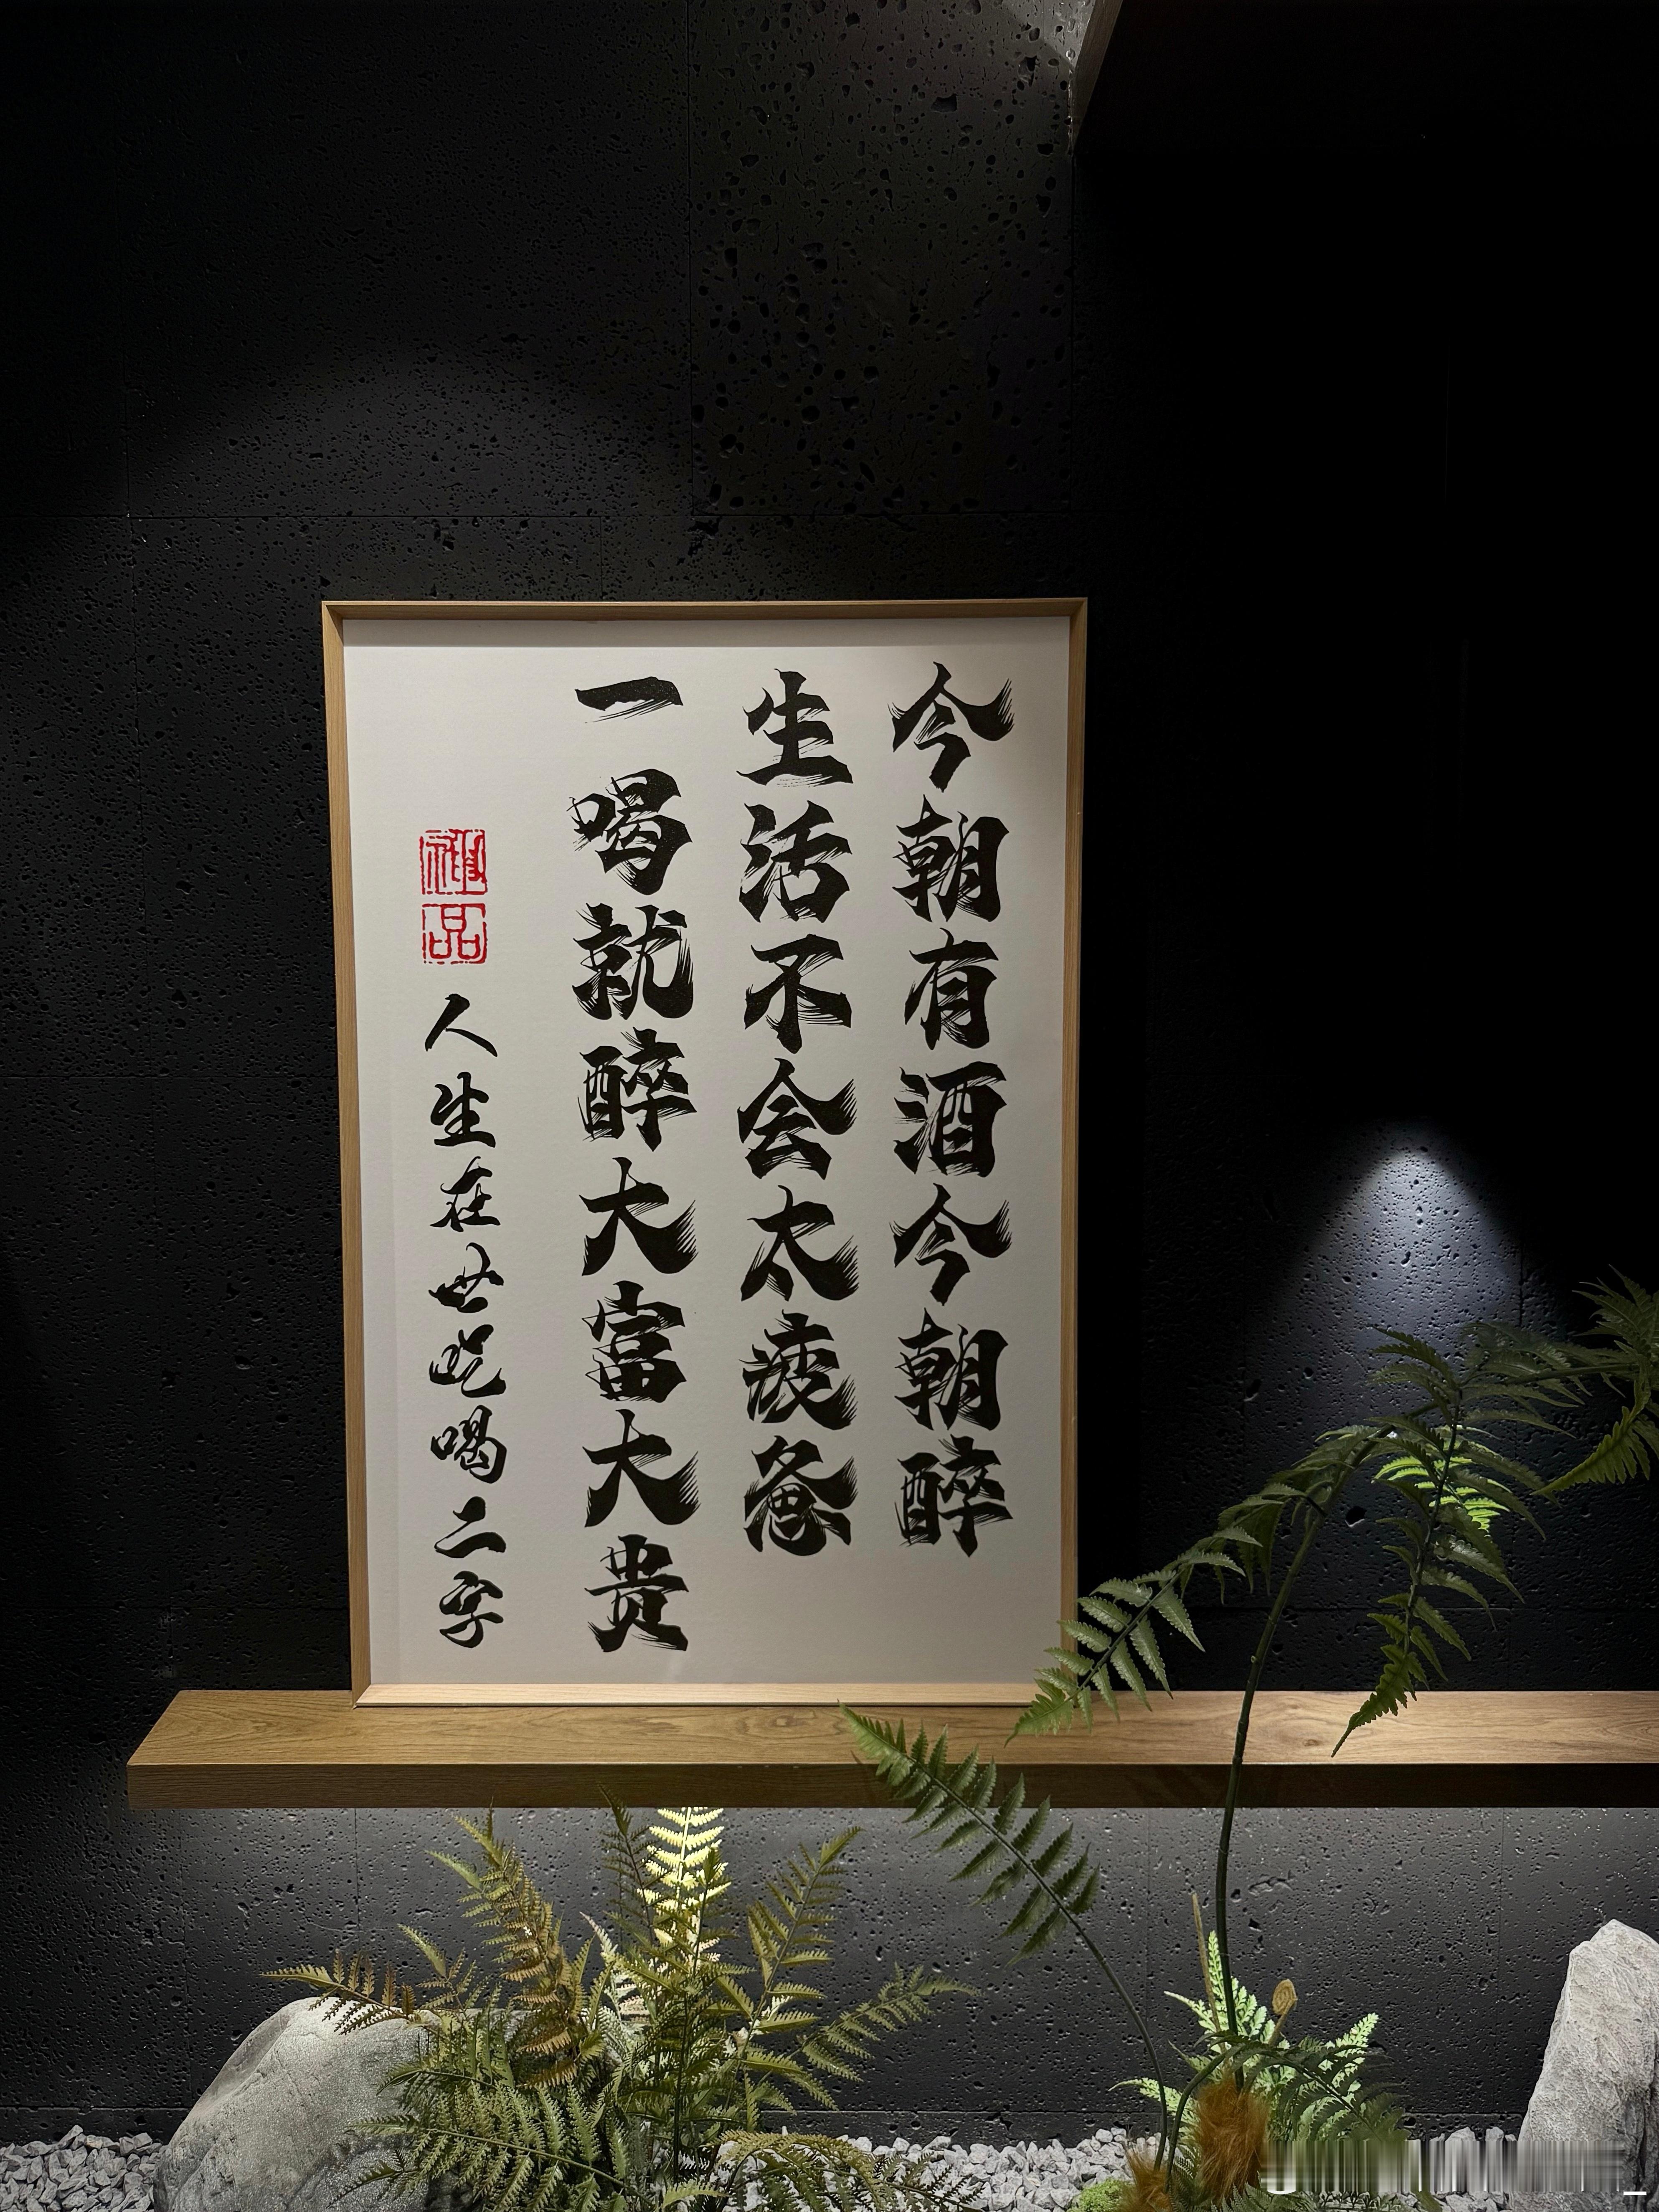 今朝有酒今朝醉
生活不会太疲惫
一喝就醉大富大贵
人生在世吃喝二字